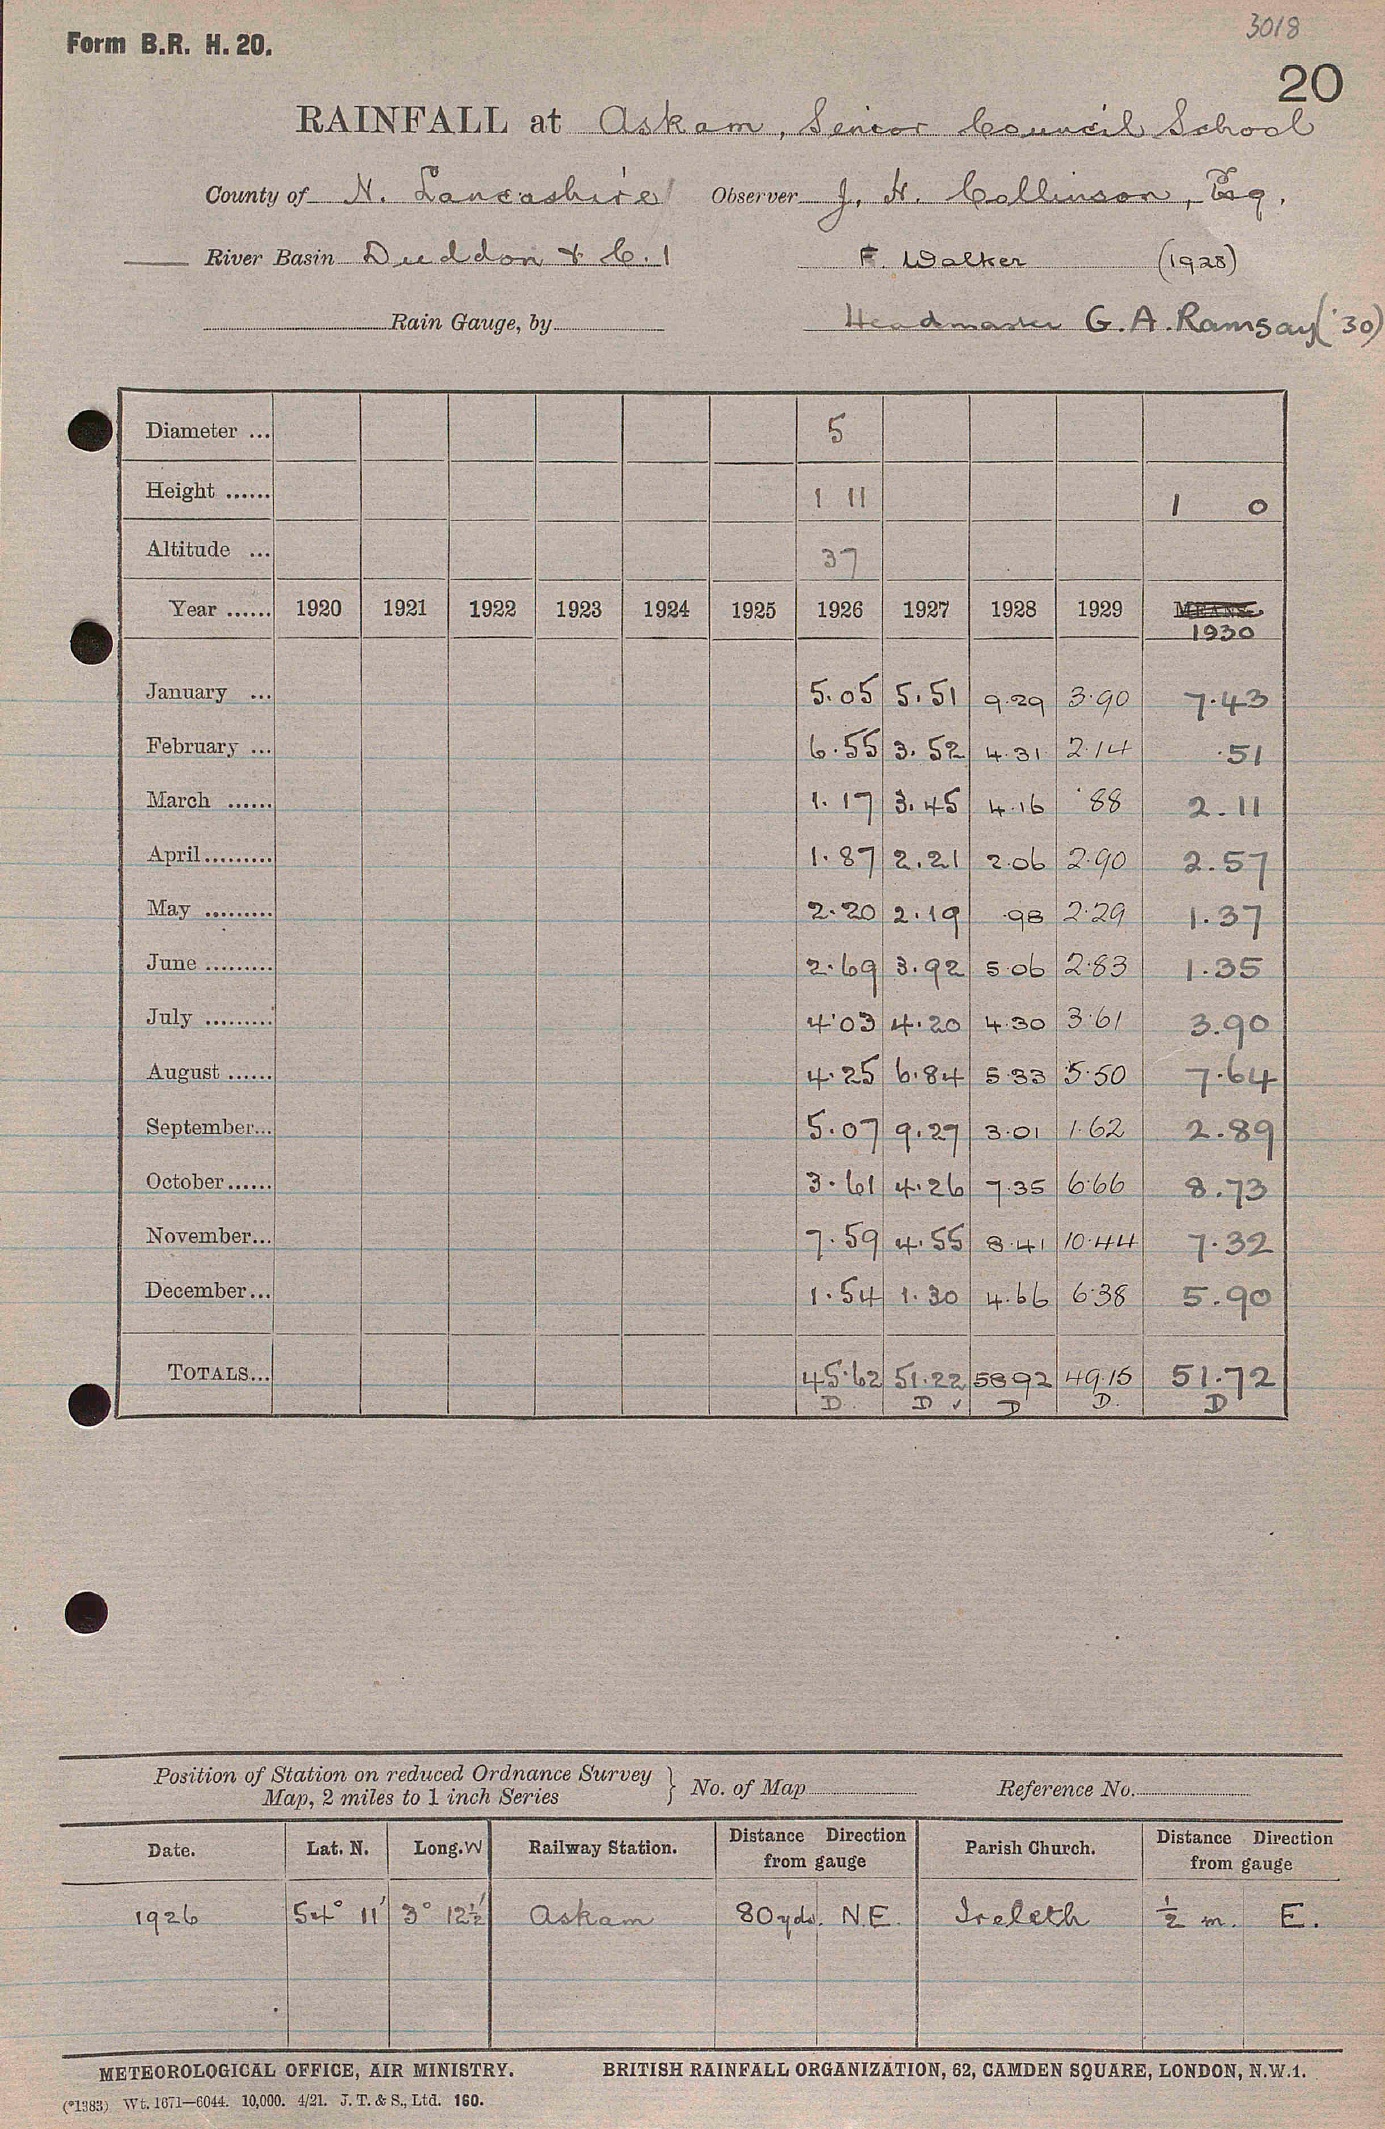 3018
Form B.R. H. 20.
20
RAINFALL at Askam, Senior Council School
County of N. Lancashire Observer J. H. Collinson, Esq.
River Basin Duddon & C. 1 F. Walker (1928)
Rain Gauge, by Headmaster G. A. Ramsay ('30)
Diameter ... 5
Height ...... 1 11 1 0
Altitude ... 37
Year ...... 1920 1921 1922 1923 1924 1925 1926 1927 1928 1929 MEANS
1930
January ... 5.05 5.51 9.29 3.90 7.43
February ... 6.55 3.52 4.31 2.14 .51
March ...... 1.17 3.45 4.16 .88 2.11
April......... 1.87 2.21 2.06 2.90 2.57
May ......... 2.20 2.19 .98 2.29 1.37
June ......... 2.69 3.92 5.06 2.83 1.35
July ......... 4.03 4.20 4.30 3.61 3.90
August ...... 4.25 6.84 5.33 5.50 7.64
September... 5.07 9.27 3.01 1.62 2.89
October...... 3.61 4.26 7.35 6.66 8.73
November... 7.59 4.55 8.41 10.44 7.32
December... 1.54 1.30 4.66 6.38 5.90
TOTALS... 45.62 51.22 58.92 49.15 51.72
D. D ✓ D D. D
Position of Station on reduced Ordnance Survey
Map, 2 miles to 1 inch Series } No. of Map Reference No.
Date. Lat. N. Long. W Railway Station. Distance Direction from gauge Parish Church. Distance Direction from gauge
1926 54° 11' 3° 12½' Askam 80 yds. N.E. Ireleth ½ m. E.
METEOROLOGICAL OFFICE, AIR MINISTRY. BRITISH RAINFALL ORGANIZATION, 62, CAMDEN SQUARE, LONDON, N.W.1.
(*1383) Wt. 1671—6044. 10,000. 4/21. J. T. & S., Ltd. 160.